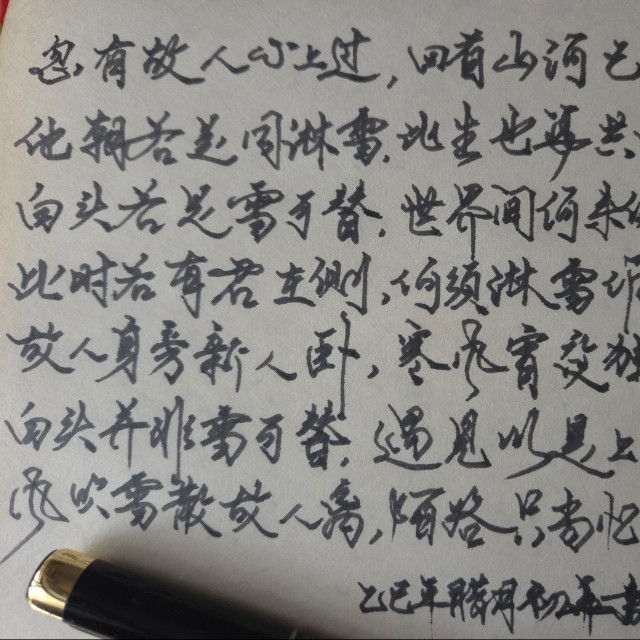 忽有故人心上过,回首山河已
他朝若是同淋雪,此生也算共
白头若是雪可替,世界间何来
此时若有君在侧,何须淋雪
故人身旁新人卧,寒风宵没独
白头并非雪可替,遇见以是上
风吹雪散故人离,陌路只当忆
乙巳年腊月初